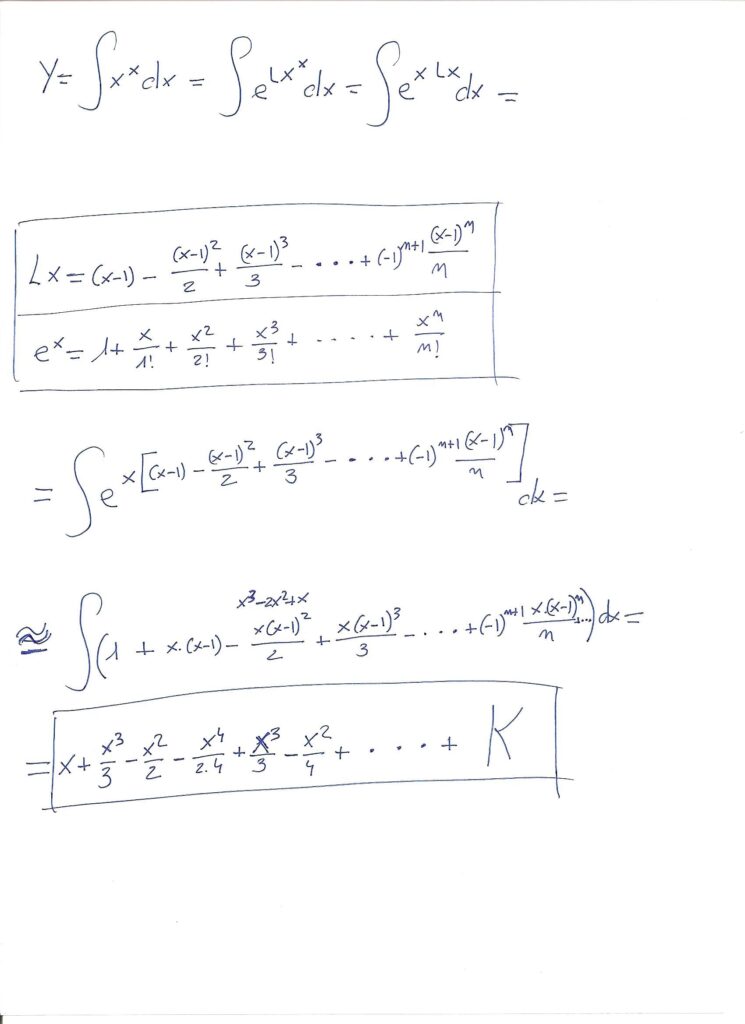 Y = ∫x^x dx = ∫e^{Lx^x} dx = ∫e^{x Lx} dx =
Lx = (x-1) - (x-1)^2/2 + (x-1)^3/3 - ···· + (-1)^{n+1} (x-1)^n/n
e^x = 1 + x/1! + x^2/2! + x^3/3! + ····· + x^n/n!
= ∫e^{x[(x-1) - (x-1)^2/2 + (x-1)^3/3 - ···· + (-1)^{n+1} (x-1)^n/n]} dx =
x^3-2x^2+x
≅ ∫(1 + x·(x-1) - x(x-1)^2/2 + x(x-1)^3/3 - ···· + (-1)^{n+1} x·(x-1)^n/n + ...) dx =
= x + x^3/3 - x^2/2 - x^4/2·4 + x^3/3 - x^2/4 + ···· + K